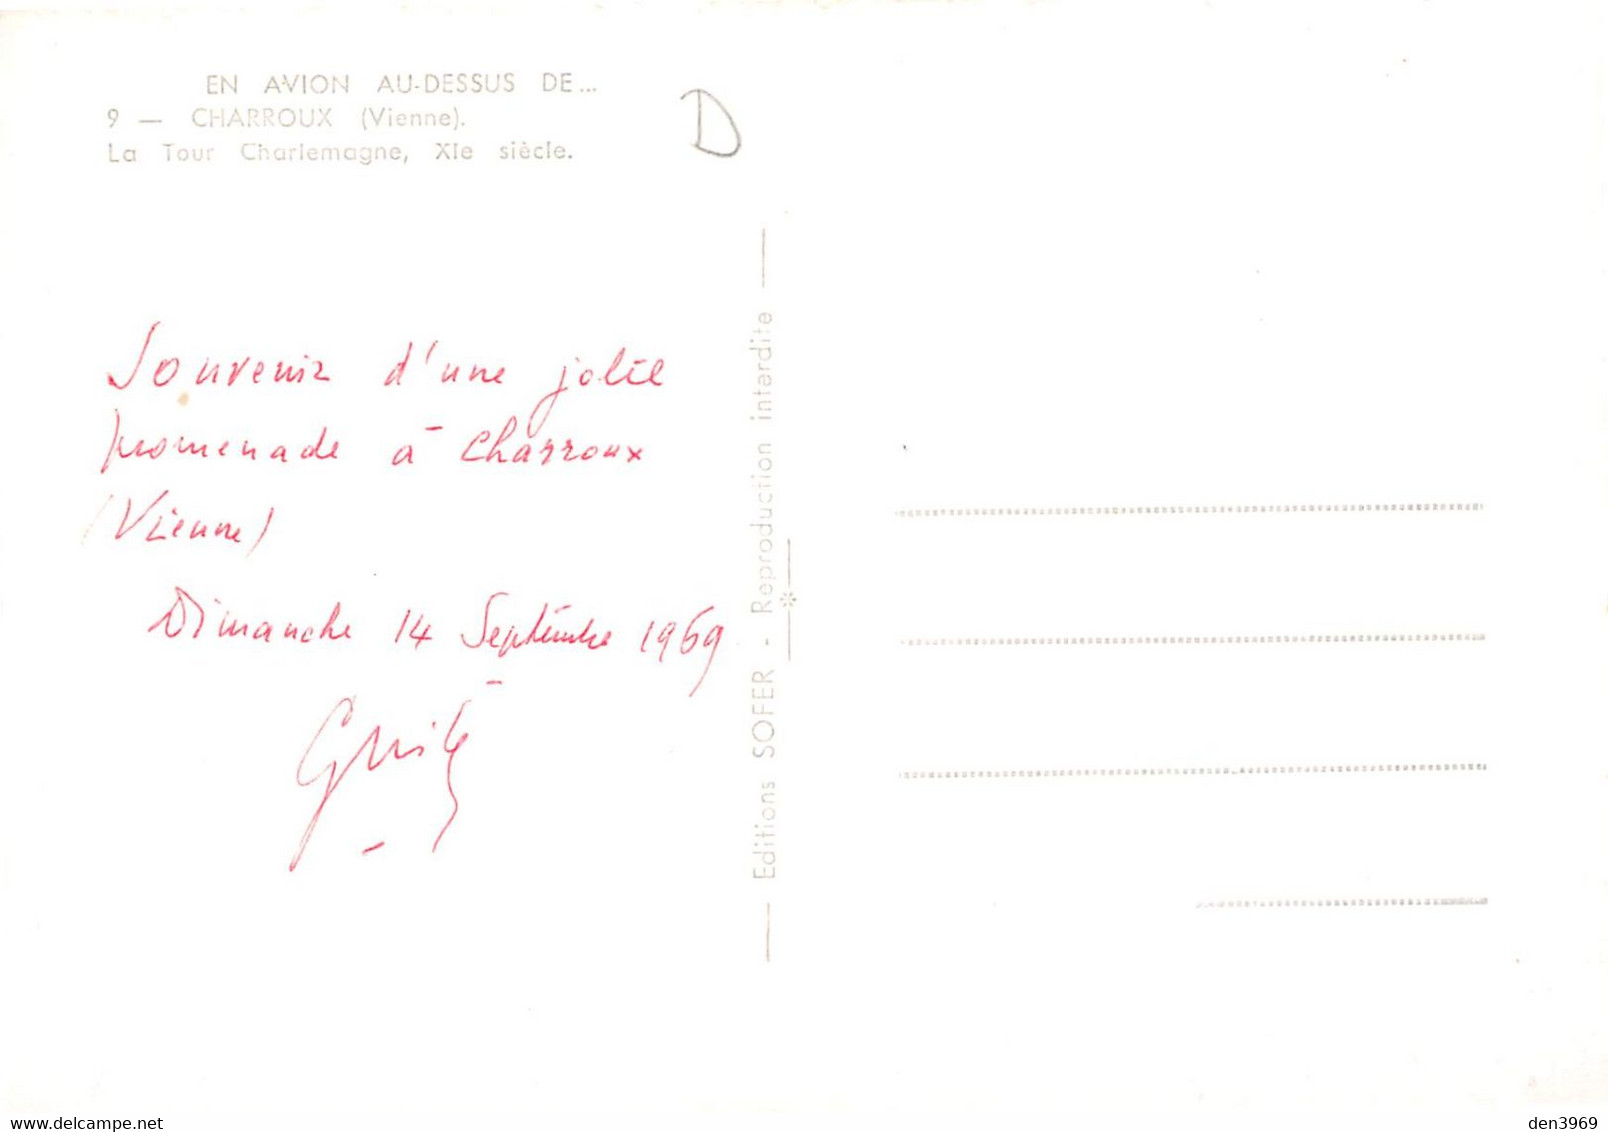 EN AVION AU-DESSUS DE...
9 — CHARROUX (Vienne).
La Tour Charlemagne, XIe siècle.
D
Souvenir d'une jolie
promenade à Charroux
(Vienne)
Dimanche 14 Septembre 1969
Editions SOFER - Reproduction interdite
delcampe.net
den3969